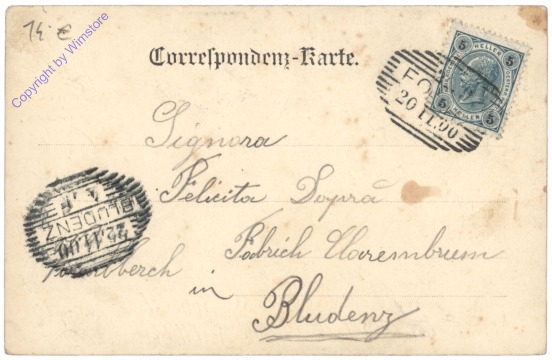 14.- €
Copyright by Wimstore
Correspondenz-Karte.
5 HELLER 5
5 HELLER 5
20 11.00
Signora
Felicita Soprà
Fabrich Clarembrum
Vorarlberch
in
Bludenz
BLUDENZ
22.11.00